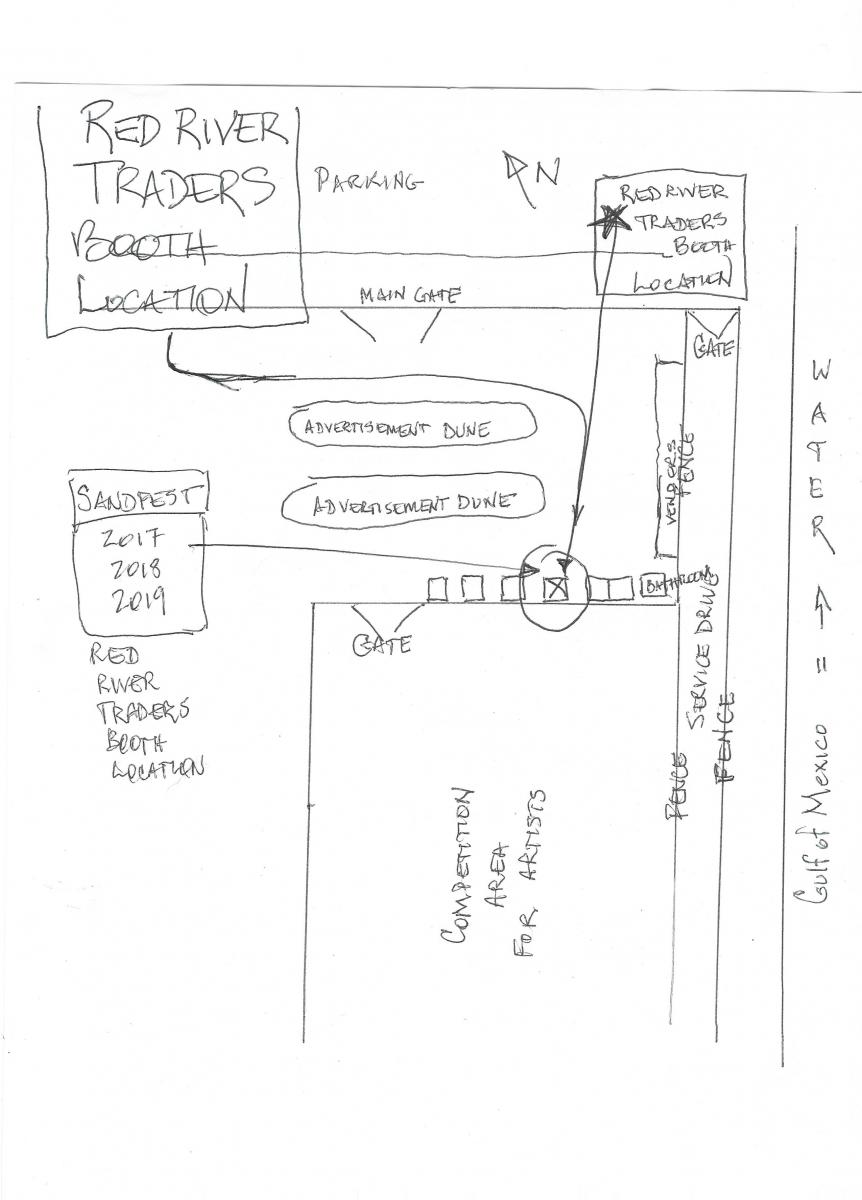 RED RIVER
TRADERS
BOOTH
LOCATION
PARKING
N
RED RIVER
TRADERS
BOOTH
LOCATION
MAIN GATE
GATE
WATER
ADVERTISEMENT DUNE
ADVERTISEMENT DUNE
VENDORS
FENCE
SANDFEST
2017
2018
2019
RED
RIVER
TRADERS
BOOTH
LOCATION
BATHROOMS
GATE
SERVICE DRIVE
FENCE
FENCE
=
Gulf of Mexico
COMPETITION
AREA
FOR ARTISTS